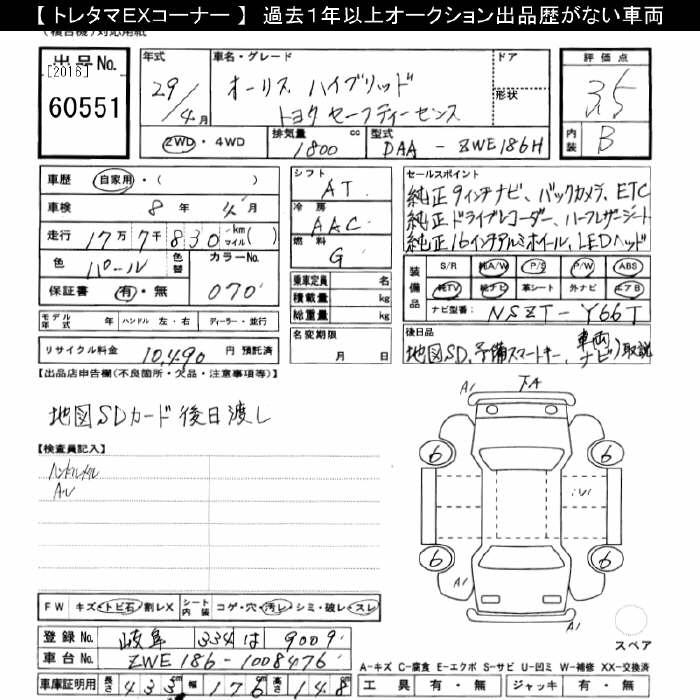 【 トレタマEXコーナー 】 過去1年以上オークション出品歴がない車両
出品No.
[2016]
60551
年式
29/4月
車名・グレード
オーリス ハイブリッド
トヨタ セーフティーセンス
ドア
形状
評価点
3.5
内装
B
2WD・4WD
排気量 1800 cc
型式 DAA - ZWE186H
車歴 自家用・( )
車検 8年 4月
走行 17万7千830 km マイル( )
色 パール 色替 カラーNo. 070
保証書 有・無
シフト AT
冷房 AAC
燃料 G
乗車定員 名
積載量 kg
総重量 kg
セールスポイント
純正9インチナビ、バックカメラ、ETC
純正ドライブレコーダー、ハーフレザーシート
純正16インチアルミホイール、LEDヘッド
装備品
S/R 純A/W P/S P/W ABS
純TV 純ナビ 革シート 外ナビ エアB
ナビ型番: NSZT-Y66T
モデル年式 年 ハンドル 左・右 ディーラー・並行
名変期限 月 日
後日品
地図SD、予備スマートキー、車両 ナビ)取説
リサイクル料金 10,490 円 預託済
【出品店申告欄(不良箇所・欠品・注意事項等)】
地図SDカード後日渡し
【検査員記入】
ハンドルスレ
A1
下A
A1
6
6
6
6
A1
A1
FW キズ・トビ石・割レX シート内装 コゲ・穴・汚レ・シミ・破レ・スレ
スペア
登録No. 岐阜 334 は 9009
車台No. ZWE186-1008476
A-キズ C-腐食 E-エクボ S-サビ U-凹ミ W-補修 XX-交換済
車庫証明用 長さ 433 cm 幅 176 cm 高さ 148
工具 有・無 ジャッキ 有・無